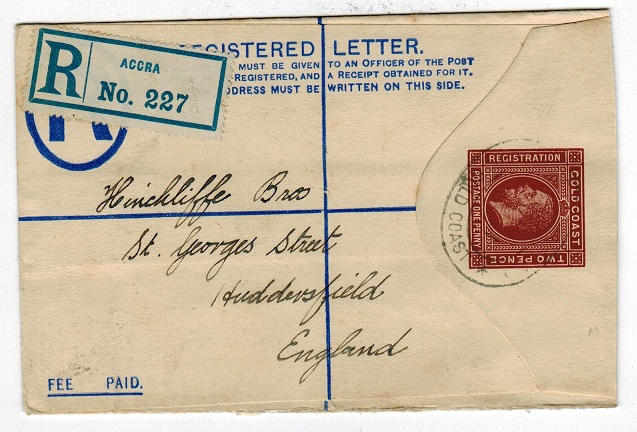 REGISTERED LETTER.
MUST BE GIVEN TO AN OFFICER OF THE POST
REGISTERED, AND A RECEIPT OBTAINED FOR IT.
ADDRESS MUST BE WRITTEN ON THIS SIDE.
R
ACCRA
No. 227
REGISTRATION
GOLD COAST
POSTAGE ONE PENNY
TWO PENCE
LD COAS
Hinchliffe Bros
St. Georges Street
Huddersfield
England
FEE PAID.
M